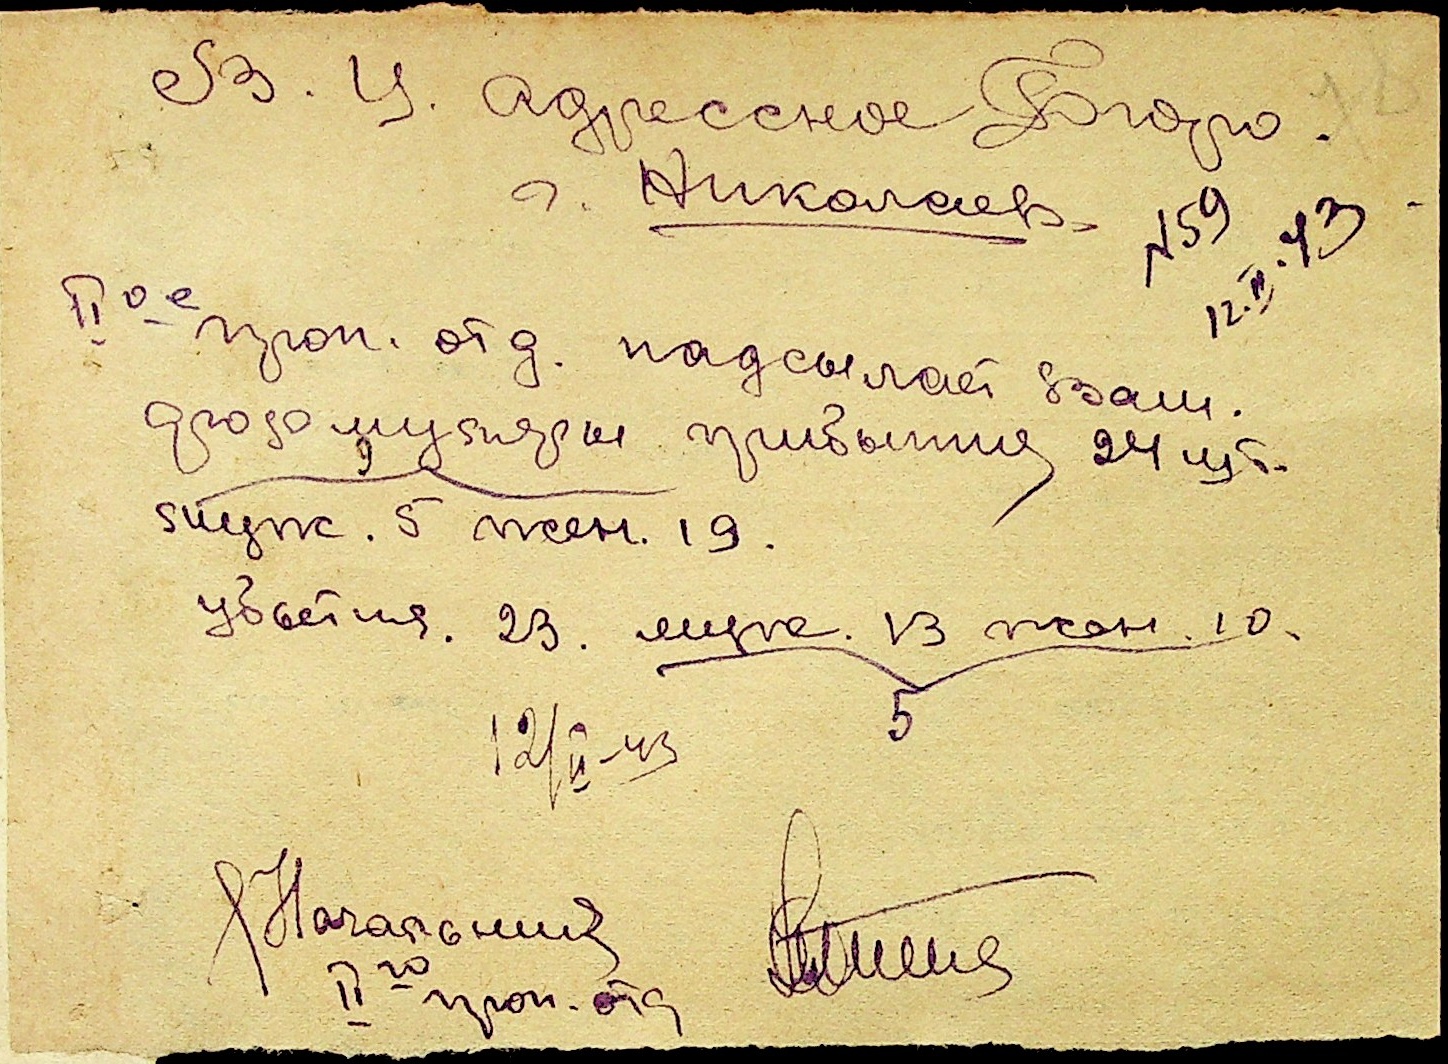 В. Ц. Адрессное Бюро.
г. Николаев.
N59
12.II.43
II ое проп. отд. надсылает вам.
формуляры прибытия 24 шт.
9
муж. 5 жен. 19.
убытия. 23. муж. 13 жен. 10.
5
12/II-43
Начальник
II го проп. отд